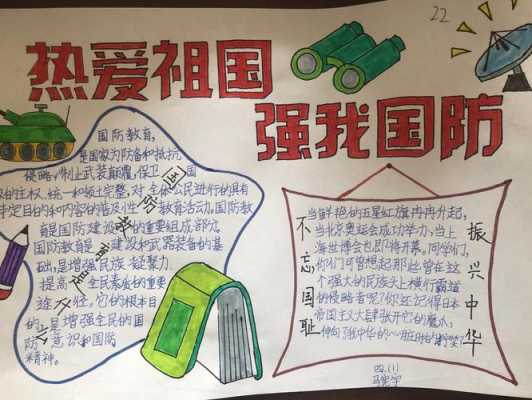 22
热爱祖国
强我国防
国防教育,
是国家为防备和抵抗
侵略,制止武装颠覆,保卫国
的主权、统一和领土完整,对全体公民进行的具有
特定目的和内容的普及性教育活动。国防教
育是国防建设的重要组成部分。
国防教育是建设和武器装备的基
础,是增强民族凝聚力、
提高全民素养的重要
途径。它的根本目
的是增强全民的国
防意识和国防
精神。
国防教育
不忘国耻
当鲜艳的五星红旗冉冉升起,
当北京奥运会成功举办,当上
海世博会也即将开幕,同学们,
你们可曾想起那些曾在这
个强大的民族头上横行霸道
的侵略者呢?你还记得日本
帝国主义大肆张开它的魔爪,
伸向
振兴中华
四.(1)